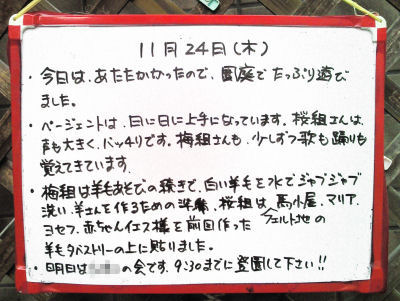 11月24日(木)
・今日は、あたたかかったので、園庭でたっぷり遊び
ました。
・ページェントは、日に日に上手になっています。桜組さんは、
声も大きく、バッチリです。梅組さんも、少しずつ歌も踊りも
覚えてきています。
・梅組は羊毛あそびの続きで、白い羊毛を水でジャブジャブ
洗い、羊さんを作るための準備、桜組は、馬小屋、マリア、
ヨセフ、赤ちゃんイエス様を前回作ったフェルト地の
羊毛タペストリーの上に貼りました。
・明日は の会です。9:30までに登園して下さい!!